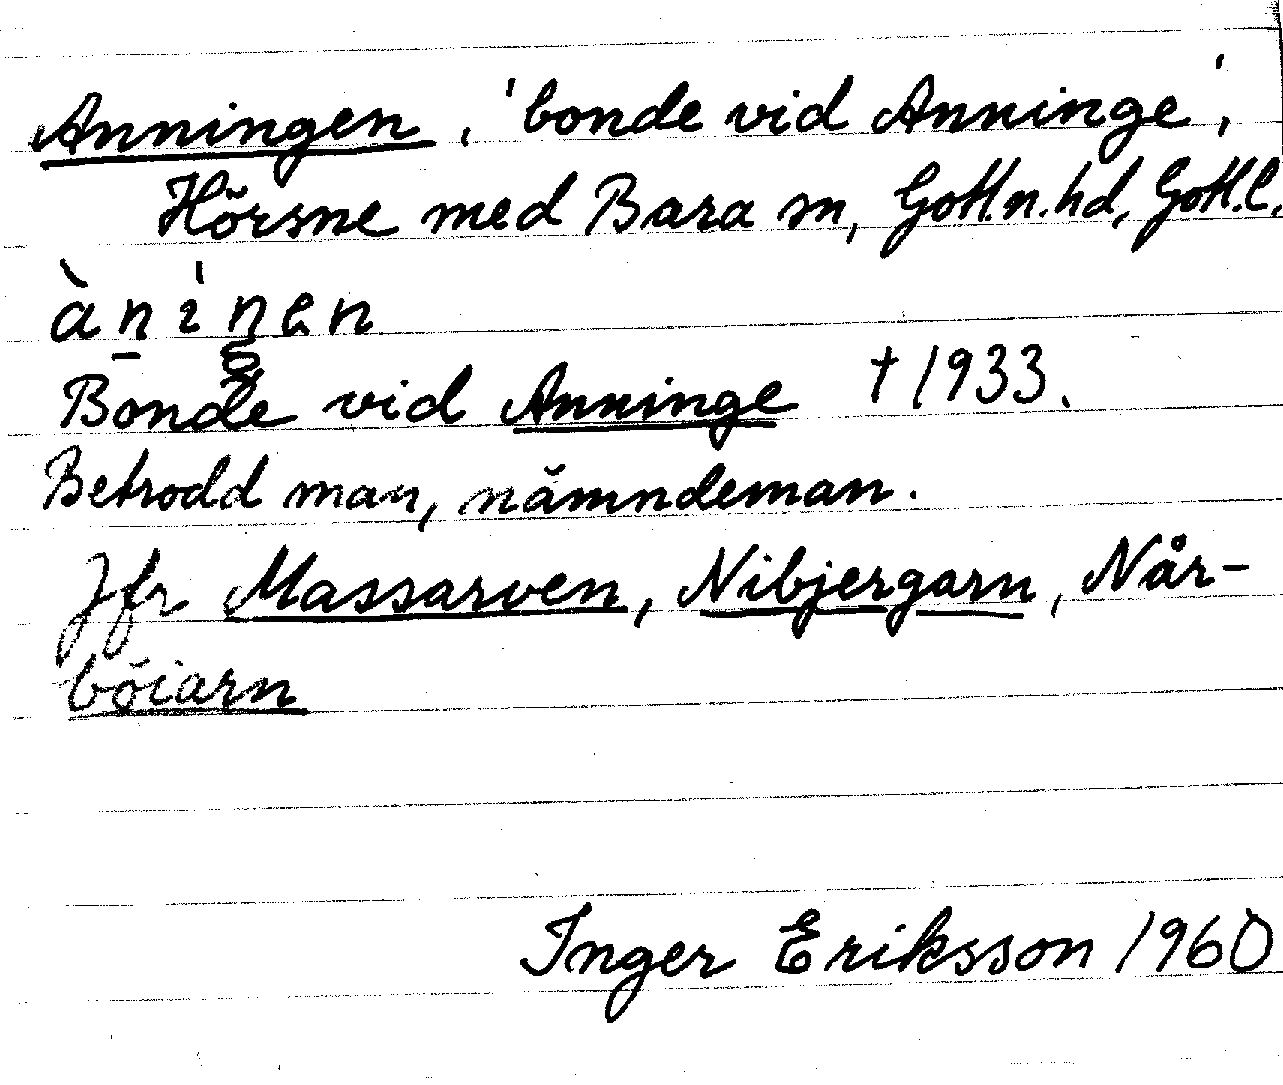 Anningen, 'bonde vid Anninge',
Hörsne med Bara sn, Gotl.n.hd, Gotl.l.
àn̠i̍n̠en
Bonde vid Anninge † 1933.
Betrodd man, nämndeman.
Jfr Massarven, Nibjergarn, Når-
böiarn
Inger Eriksson 1960